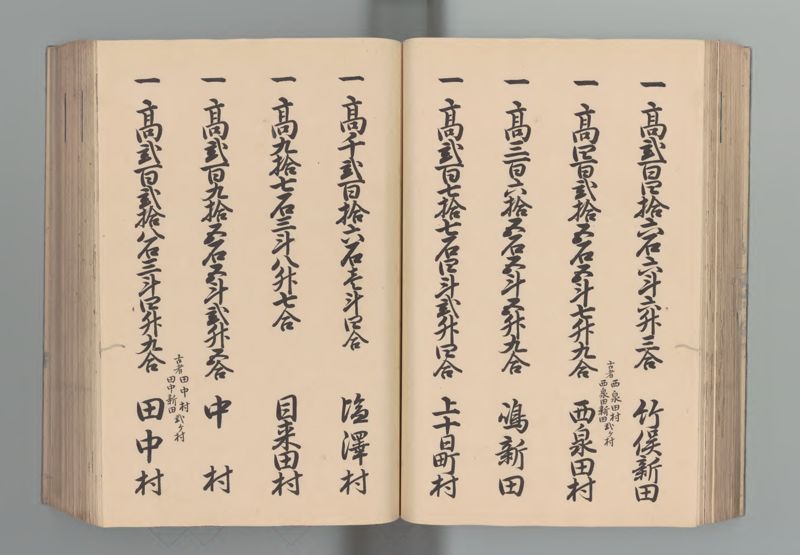 一 高弐百四拾六石六斗六升三合 竹俣新田
一 高四百弐拾五石五斗七升九合 西泉田村
古者 西泉田村 西泉田新田 弐ケ村
一 高三百六拾五石五斗五升九合 嶋新田
一 高弐百七拾七石四斗弐升四合 上十日町村
一 高千弐百拾六石壱斗四合 塩澤村
一 高九拾七石三斗八升七合 目来田村
一 高弐百九拾五石五斗弐升五合 中村
古者 田中村 田中新田 弐ケ村
一 高弐百弐拾八石三斗四升九合 田中村